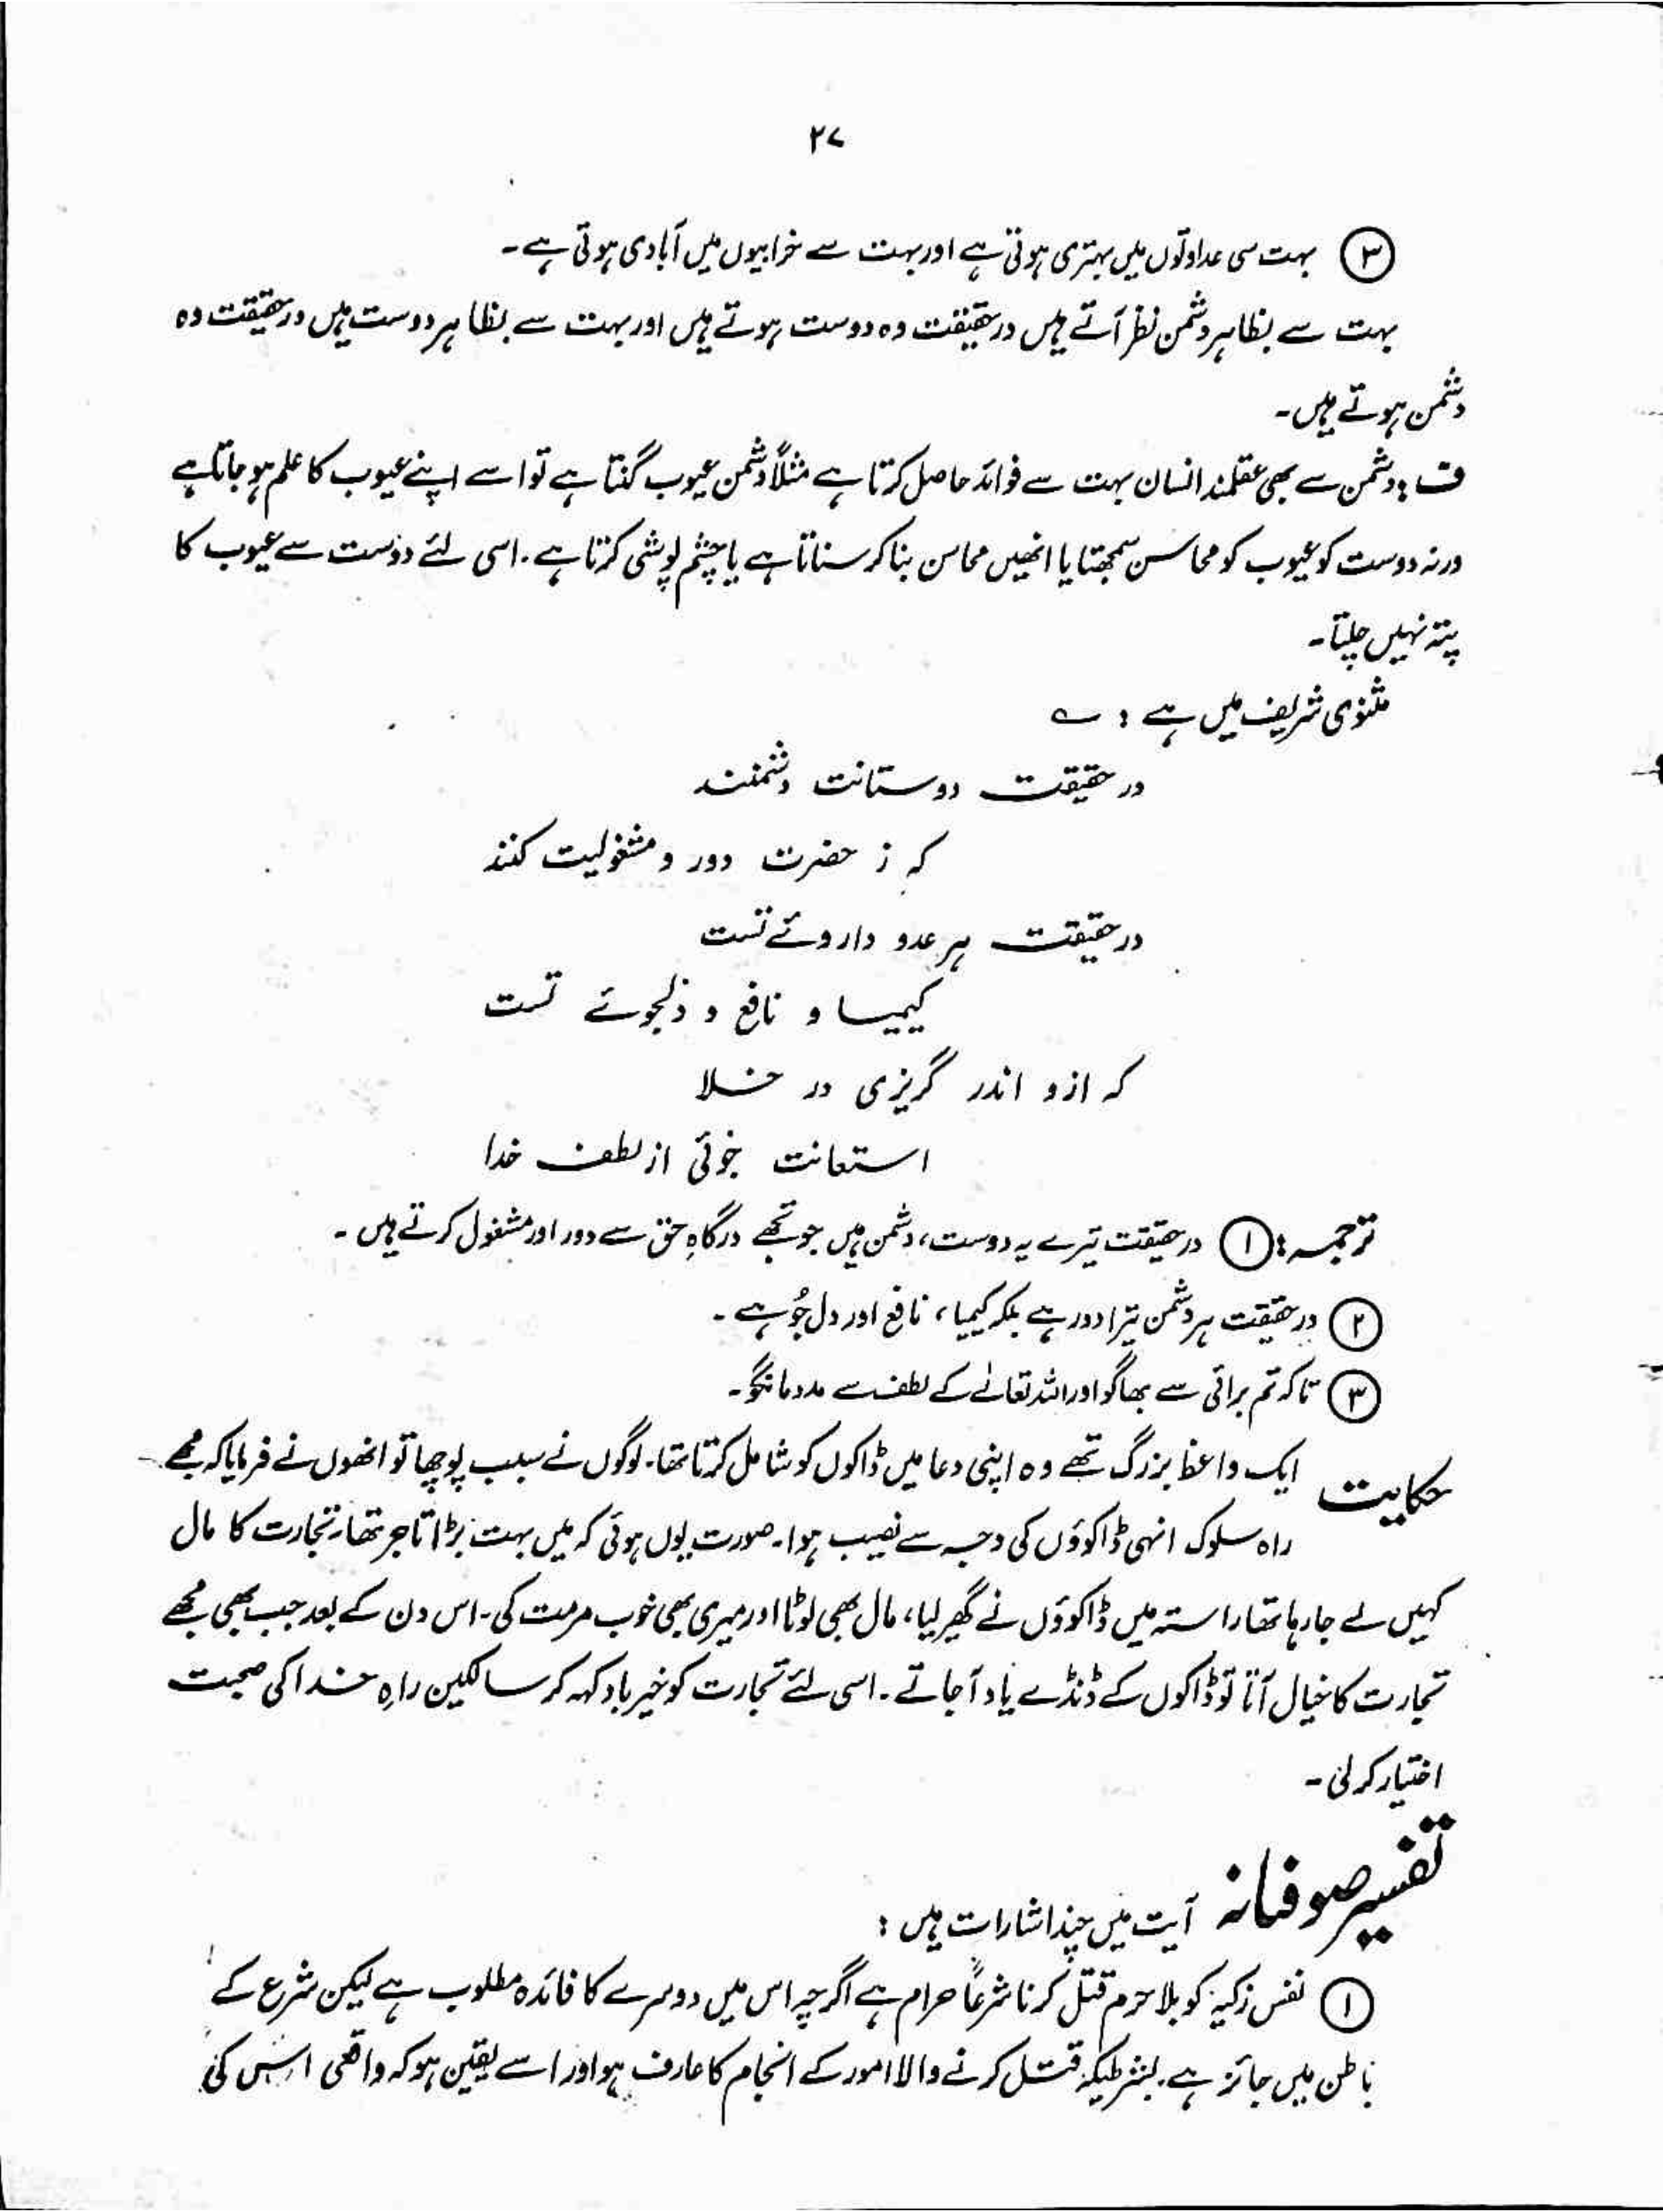 ۲۷
③ بہت سی عداوتوں میں بہتری ہوتی ہے اور بہت سے خرابیوں میں آبادی ہوتی ہے۔
بہت سے بظاہر دشمن نظر آتے ہیں درحقیقت وہ دوست ہوتے ہیں اور بہت سے بظاہر دوست ہیں درحقیقت وہ
دشمن ہوتے ہیں۔
ف: دشمن سے بھی عقلمند انسان بہت سے فوائد حاصل کرتا ہے مثلاً دشمن عیوب گنتا ہے تو اسے اپنے عیوب کا علم ہو جاتا ہے
ورنہ دوست کو عیوب کو محاسن سمجھتا یا انھیں محاسن بنا کر سناتا ہے یا چشم پوشی کرتا ہے۔ اسی لئے دوست سے عیوب کا
پتہ نہیں چلتا۔
مثنوی شریف میں ہے : ؎
در حقیقت دوستانت دشمنند
کہ ز حضرت دور و مشغولیت کنند
در حقیقت ہر عدو داروئے تست
کیمیا و نافع و دلجوئے تست
کہ ازو اندر گریزی در خلا
استعانت جوئی از لطف خدا
ترجمہ : ① درحقیقت تیرے یہ دوست، دشمن ہیں جو تجھے درگاہِ حق سے دور اور مشغول کرتے ہیں۔
② درحقیقت ہر دشمن تیرا دور ہے بلکہ کیمیا، نافع اور دل جُو ہے۔
③ تاکہ تم برائی سے بھاگو اور اللہ تعالیٰ کے لطف سے مدد مانگو۔
حکایت ایک واعظ بزرگ تھے وہ اپنی دعا میں ڈاکوں کو شامل کرتا تھا۔ لوگوں نے سبب پوچھا تو انھوں نے فرمایا کہ مجھے
راہ سلوک انہی ڈاکوؤں کی وجہ سے نصیب ہوا۔ صورت یوں ہوئی کہ میں بہت بڑا تاجر تھا۔ تجارت کا مال
کہیں لے جا رہا تھا راستہ میں ڈاکوؤں نے گھیر لیا، مال بھی لوٹا اور میری بھی خوب مرمت کی۔ اس دن کے بعد جب بھی مجھے
تجارت کا خیال آتا تو ڈاکوں کے ڈنڈے یاد آ جاتے۔ اسی لئے تجارت کو خیر باد کہہ کر سالکین راہِ خدا کی صحبت
اختیار کر لی۔
تفسیر صوفیانہ آیت میں چند اشارات ہیں :
① نفس زکیہ کو بلا جرم قتل کرنا شرعًا حرام ہے اگرچہ اس میں دوسرے کا فائدہ مطلوب ہے لیکن شرع کے
باطن میں جائز ہے۔ بشرطیکہ قتل کرنے والا امور کے انجام کا عارف ہو اور اسے یقین ہو کہ واقعی اس کی